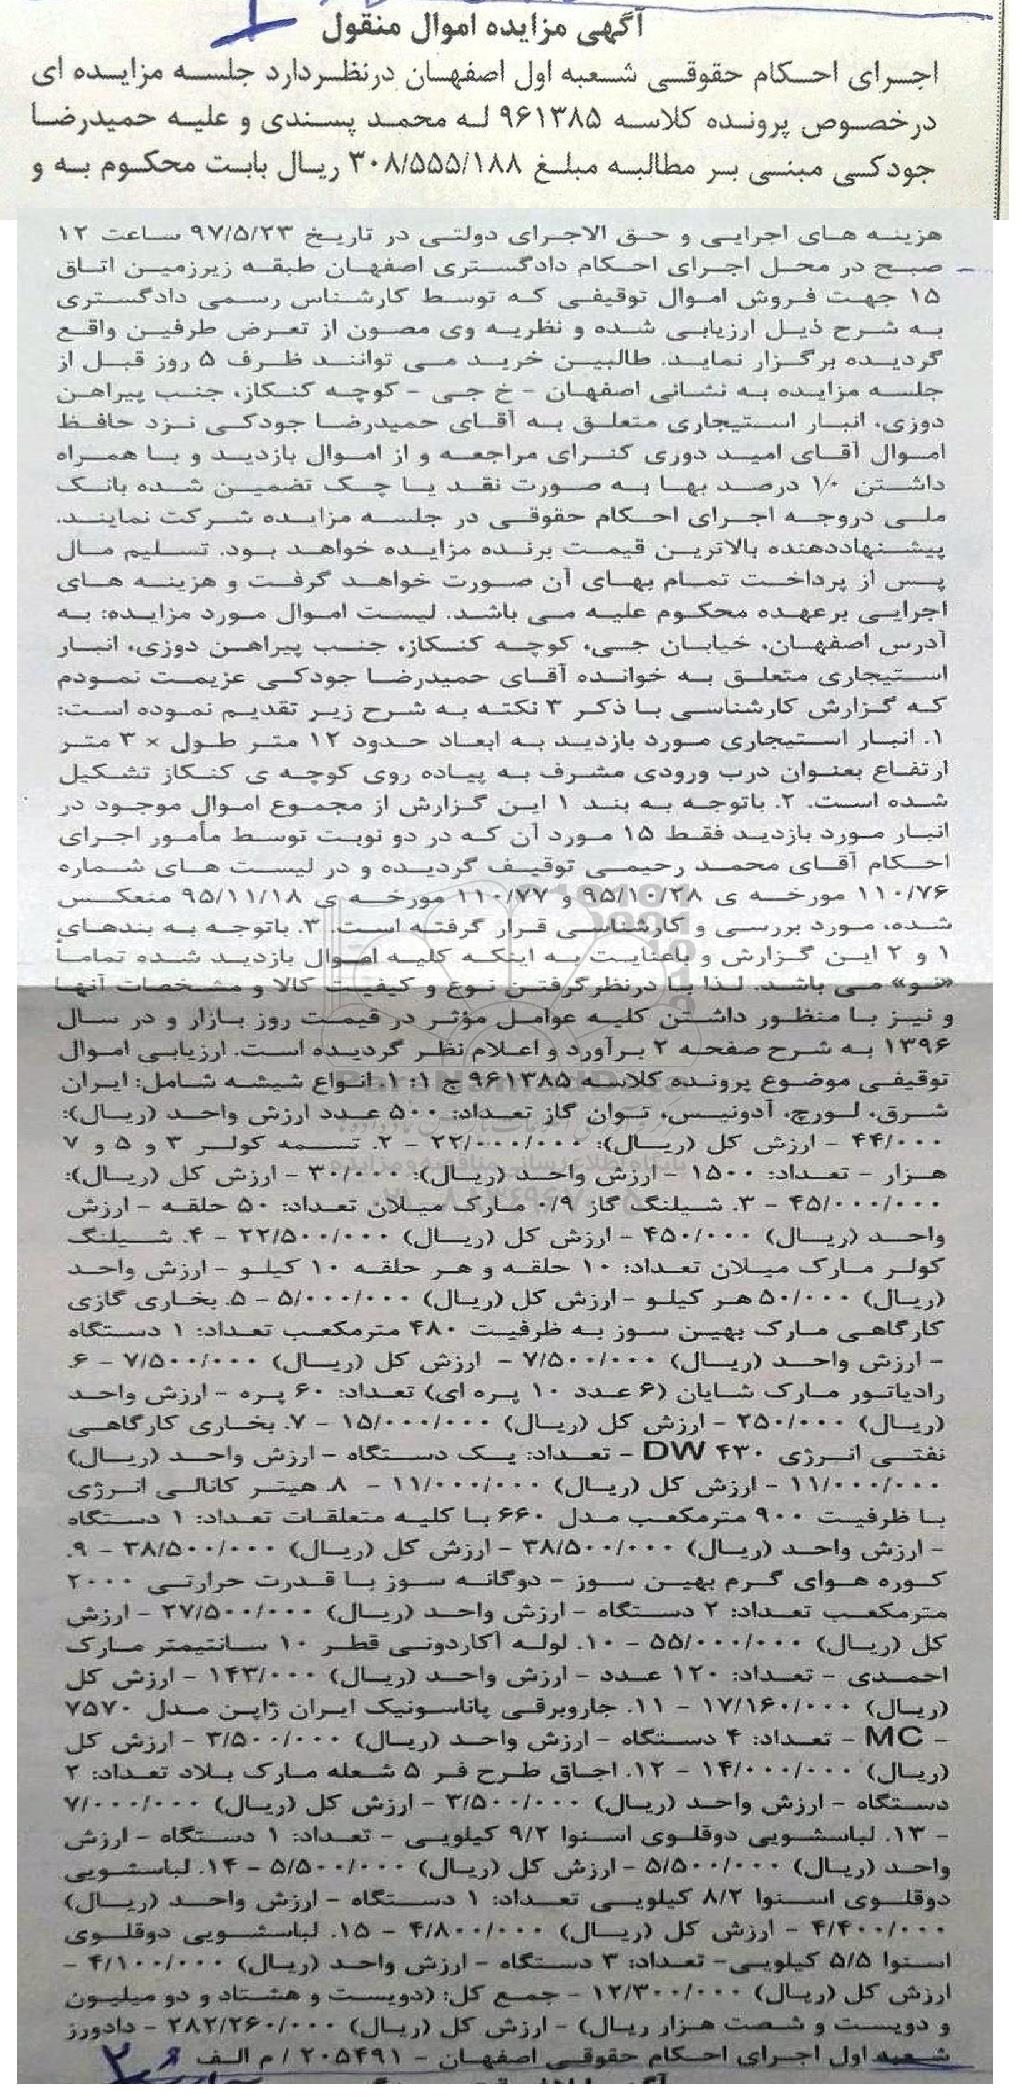 آگهی مزایده اموال منقول
اجرای احکام حقوقی شعبه اول اصفهان درنظردارد جلسه مزایده ای
درخصوص پرونده کلاسه ۹۶۱۳۸۵ له محمد پسندی و علیه حمیدرضا
جودکی مبنی بر مطالبه مبلغ ۳۰۸/۵۵۵/۱۸۸ ریال بابت محکوم به و
هزینه های اجرایی و حق الاجرای دولتی در تاریخ ۹۷/۵/۲۳ ساعت ۱۲
صبح در محل اجرای احکام دادگستری اصفهان طبقه زیرزمین اتاق
۱۵ جهت فروش اموال توقیفی که توسط کارشناس رسمی دادگستری
به شرح ذیل ارزیابی شده و نظریه وی مصون از تعرض طرفین واقع
گردیده برگزار نماید. طالبین خرید می توانند ظرف ۵ روز قبل از
جلسه مزایده به نشانی اصفهان - خ جی - کوچه کنکاز، جنب پیراهن
دوزی، انبار استیجاری متعلق به آقای حمیدرضا جودکی نزد حافظ
اموال آقای امید دوری کنرای مراجعه و از اموال بازدید و با همراه
داشتن ۱۰ درصد بها به صورت نقد یا چک تضمین شده بانک
ملی دروجه اجرای احکام حقوقی در جلسه مزایده شرکت نمایند.
پیشنهاددهنده بالاترین قیمت برنده مزایده خواهد بود. تسلیم مال
پس از پرداخت تمام بهای آن صورت خواهد گرفت و هزینه های
اجرایی برعهده محکوم علیه می باشد. لیست اموال مورد مزایده: به
آدرس اصفهان، خیابان جی، کوچه کنکاز، جنب پیراهن دوزی، انبار
استیجاری متعلق به خوانده آقای حمیدرضا جودکی عزیمت نمودم
که گزارش کارشناسی با ذکر ۳ نکته به شرح زیر تقدیم نموده است:
۱. انبار استیجاری مورد بازدید به ابعاد حدود ۱۲ متر طول × ۳ متر
ارتفاع بعنوان درب ورودی مشرف به پیاده روی کوچه ی کنکاز تشکیل
شده است. ۲. باتوجه به بند ۱ این گزارش از مجموع اموال موجود در
انبار مورد بازدید فقط ۱۵ مورد آن که در دو نوبت توسط مأمور اجرای
احکام آقای محمد رحیمی توقیف گردیده و در لیست های شماره
۱۱۰/۷۶ مورخه ی ۹۵/۱۰/۲۸ و ۱۱۰/۷۷ مورخه ی ۹۵/۱۱/۱۸ منعکس
شده، مورد بررسی و کارشناسی قرار گرفته است. ۳. باتوجه به بندهای
۱ و ۲ این گزارش و باعنایت به اینکه کلیه اموال بازدید شده تماما
«نو» می باشد. لذا با درنظرگرفتن نوع و کیفیت کالا و مشخصات آنها
و نیز با منظور داشتن کلیه عوامل مؤثر در قیمت روز بازار و در سال
۱۳۹۶ به شرح صفحه ۲ برآورد و اعلام نظر گردیده است. ارزیابی اموال
توقیفی موضوع پرونده کلاسه ۹۶۱۳۸۵ ج ۱: ۱. انواع شیشه شامل: ایران
شرق، لورچ، آدونیس، توان گاز تعداد: ۵۰۰ عدد ارزش واحد (ریال):
۴۴/۰۰۰ - ارزش کل (ریال): ۲۲/۰۰۰/۰۰۰ - ۲. تسمه کولر ۳ و ۵ و ۷
هزار - تعداد: ۱۵۰۰ - ارزش واحد (ریال): ۳۰/۰۰۰ - ارزش کل (ریال):
۴۵/۰۰۰/۰۰۰ - ۳. شیلنگ گاز ۰/۹ مارک میلان تعداد: ۵۰ حلقه - ارزش
واحد (ریال) ۴۵۰/۰۰۰ - ارزش کل (ریال) ۲۲/۵۰۰/۰۰۰ - ۴. شیلنگ
کولر مارک میلان تعداد: ۱۰ حلقه و هر حلقه ۱۰ کیلو - ارزش واحد
(ریال) ۵۰/۰۰۰ هر کیلو - ارزش کل (ریال) ۵/۰۰۰/۰۰۰ - ۵. بخاری گازی
کارگاهی مارک بهین سوز به ظرفیت ۴۸۰ مترمکعب تعداد: ۱ دستگاه
- ارزش واحد (ریال) ۷/۵۰۰/۰۰۰ - ارزش کل (ریال) ۷/۵۰۰/۰۰۰ - ۶.
رادیاتور مارک شایان (۶ عدد ۱۰ پره ای) تعداد: ۶۰ پره - ارزش واحد
(ریال) ۲۵۰/۰۰۰ - ارزش کل (ریال) ۱۵/۰۰۰/۰۰۰ - ۷. بخاری کارگاهی
نفتی انرژی DW ۴۳۰ - تعداد: یک دستگاه - ارزش واحد (ریال)
۱۱/۰۰۰/۰۰۰ - ارزش کل (ریال) ۱۱/۰۰۰/۰۰۰ - ۸. هیتر کانالی انرژی
با ظرفیت ۹۰۰ مترمکعب مدل ۶۶۰ با کلیه متعلقات تعداد: ۱ دستگاه
- ارزش واحد (ریال) ۳۸/۵۰۰/۰۰۰ - ارزش کل (ریال) ۳۸/۵۰۰/۰۰۰ - ۹.
کوره هوای گرم بهین سوز - دوگانه سوز با قدرت حرارتی ۲۰۰۰
مترمکعب تعداد: ۲ دستگاه - ارزش واحد (ریال) ۲۷/۵۰۰/۰۰۰ - ارزش
کل (ریال) ۵۵/۰۰۰/۰۰۰ - ۱۰. لوله آکاردئونی قطر ۱۰ سانتیمتر مارک
احمدی - تعداد: ۱۲۰ عدد - ارزش واحد (ریال) ۱۴۳/۰۰۰ - ارزش کل
(ریال) ۱۷/۱۶۰/۰۰۰ - ۱۱. جاروبرقی پاناسونیک ایران ژاپن مدل ۷۵۷۰
- MC - تعداد: ۴ دستگاه - ارزش واحد (ریال) ۳/۵۰۰/۰۰۰ - ارزش کل
(ریال) ۱۴/۰۰۰/۰۰۰ - ۱۲. اجاق طرح فر ۵ شعله مارک بلاد تعداد: ۲
دستگاه - ارزش واحد (ریال) ۳/۵۰۰/۰۰۰ - ارزش کل (ریال) ۷/۰۰۰/۰۰۰
- ۱۳. لباسشویی دوقلوی اسنوا ۹/۲ کیلویی - تعداد: ۱ دستگاه - ارزش
واحد (ریال) ۵/۵۰۰/۰۰۰ - ارزش کل (ریال) ۵/۵۰۰/۰۰۰ - ۱۴. لباسشویی
دوقلوی اسنوا ۸/۲ کیلویی تعداد: ۱ دستگاه - ارزش واحد (ریال)
۴/۴۰۰/۰۰۰ - ارزش کل (ریال) ۴/۸۰۰/۰۰۰ - ۱۵. لباسشویی دوقلوی
اسنوا ۵/۵ کیلویی- تعداد: ۳ دستگاه - ارزش واحد (ریال) ۴/۱۰۰/۰۰۰ -
ارزش کل (ریال) ۱۲/۳۰۰/۰۰۰ - جمع کل: (دویست و هشتاد و دو میلیون
و دویست و شصت هزار ریال) - ارزش کل (ریال) ۲۸۲/۲۶۰/۰۰۰ - دادورز
شعبه اول اجرای احکام حقوقی اصفهان - ۲۰۵۴۹۱ / م الف